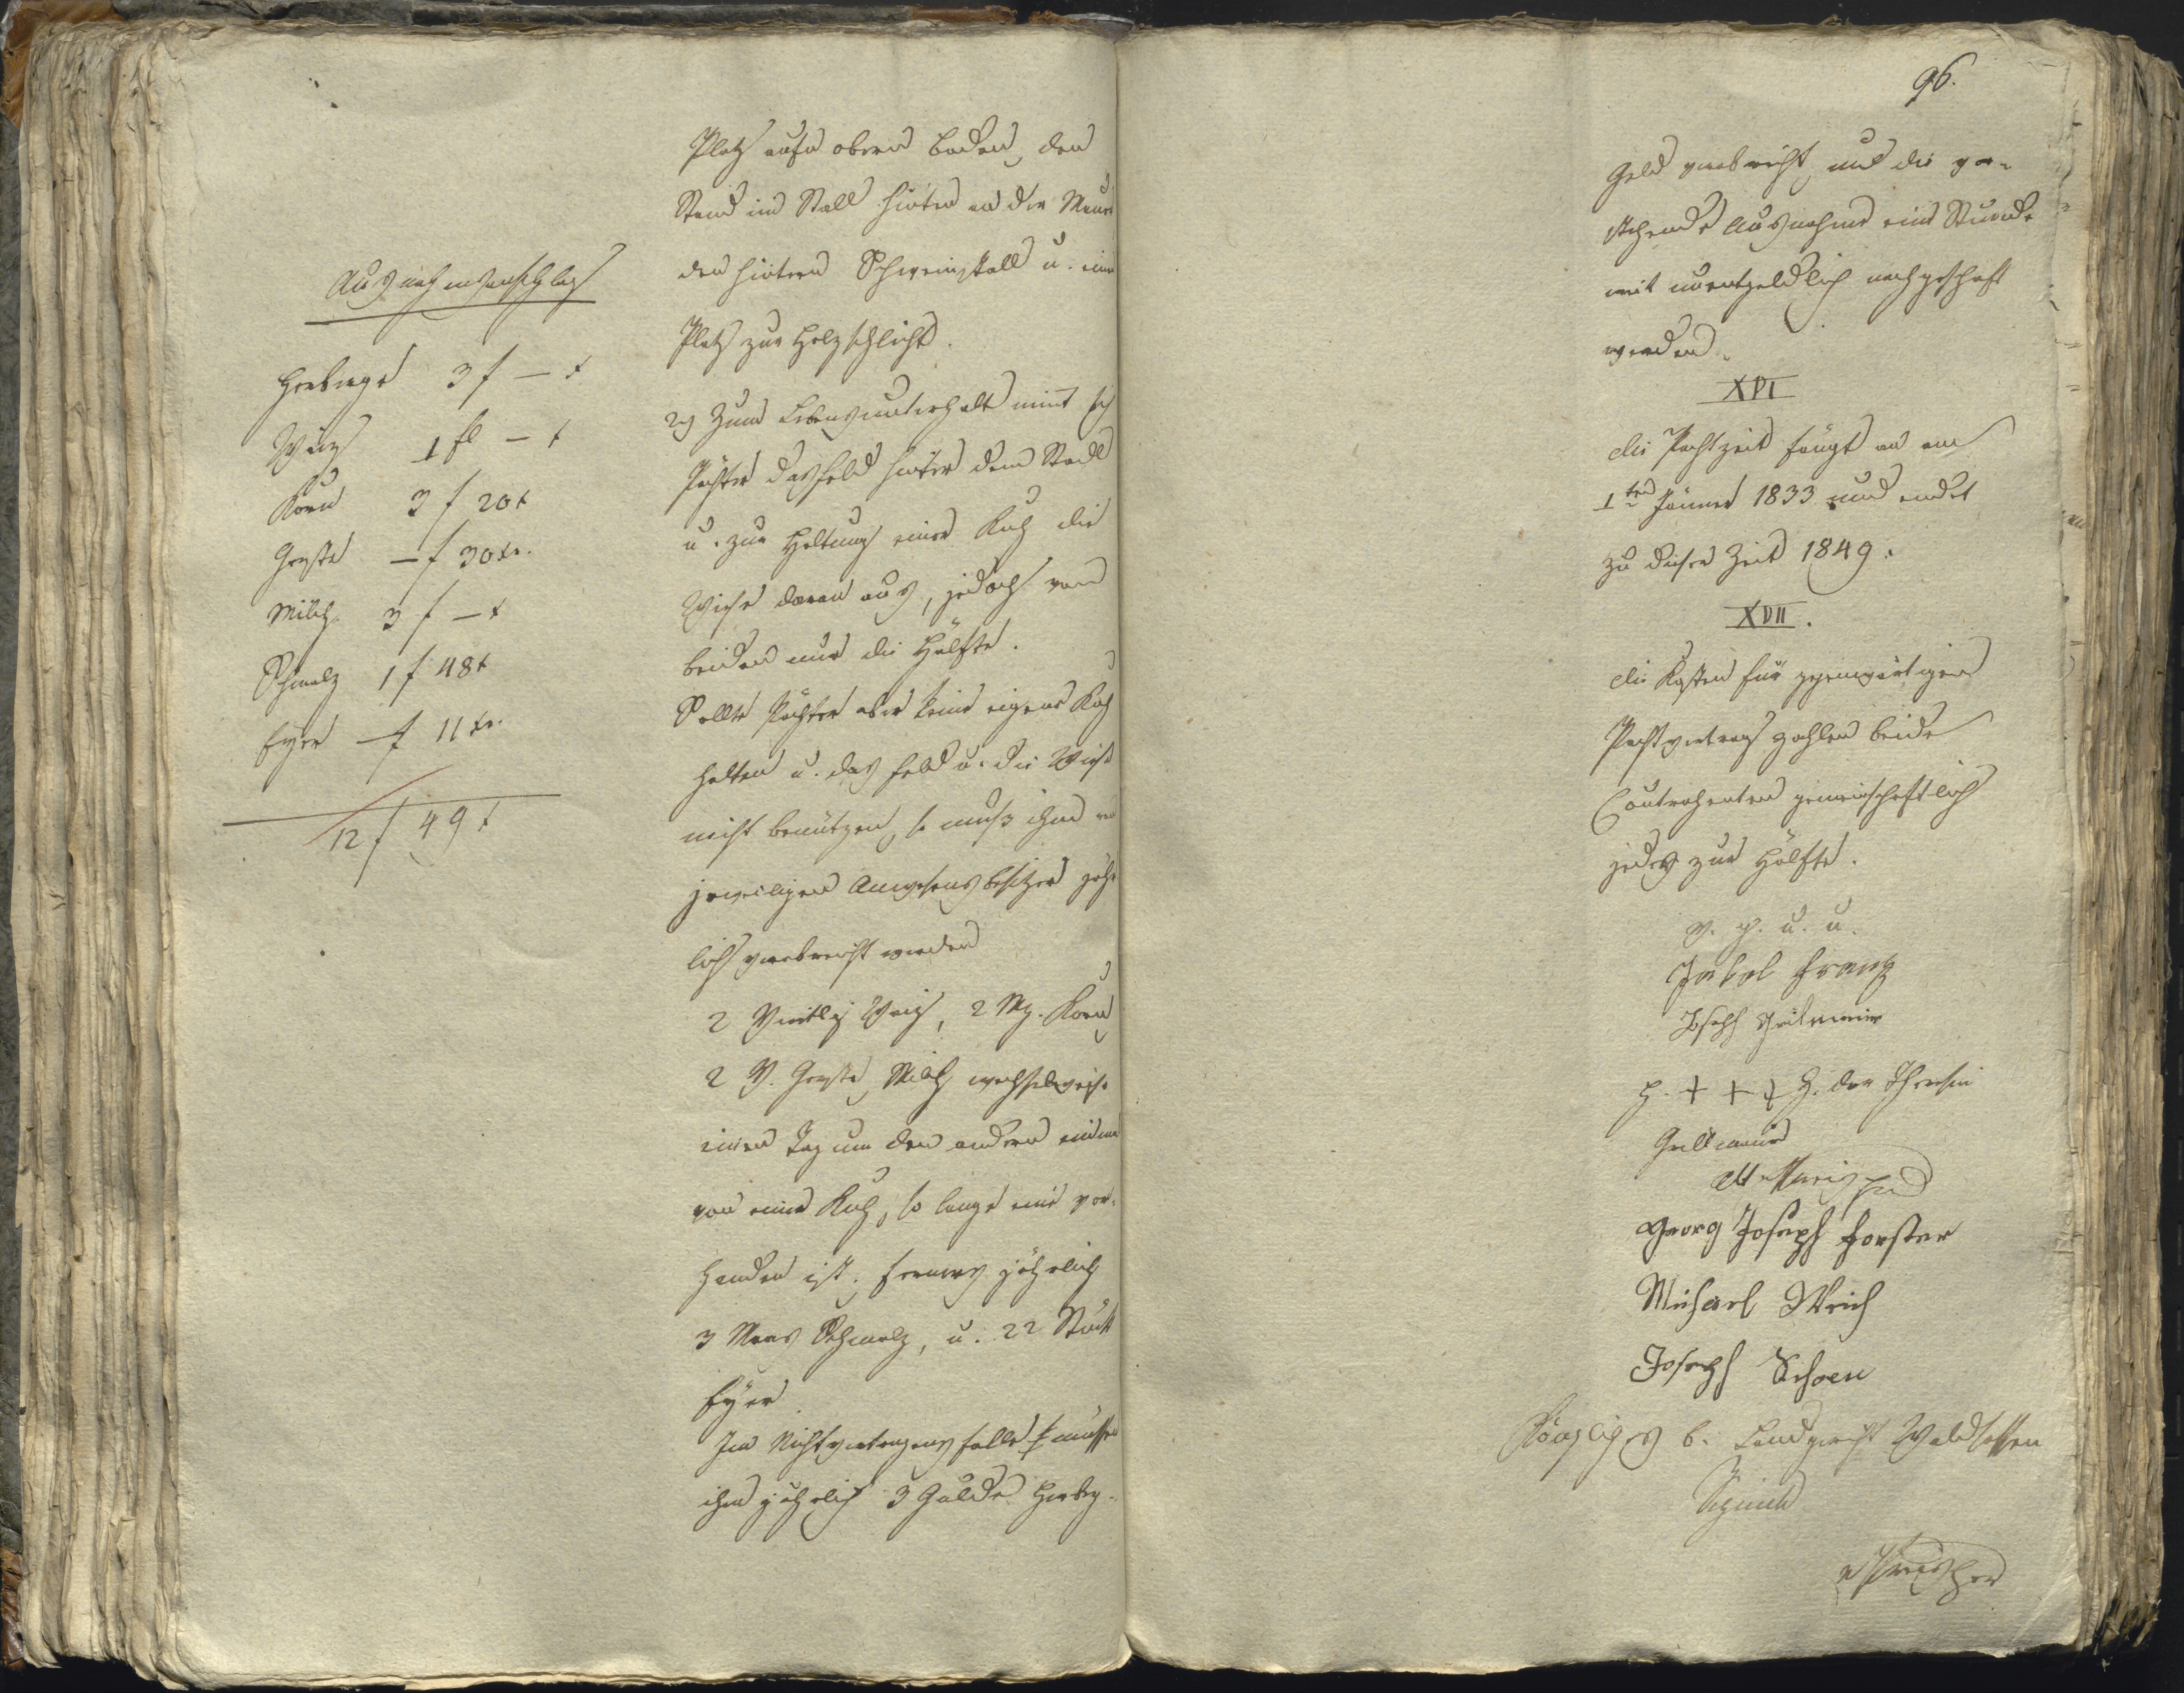 Ausnahmsanschlag
Herberge 3 f — x
Waiz 1 fl — x
Korn 3 f 20 x
Gerste — f 30 xr.
Milch 3 f — x
Schmalz 1 f 48 x
Eyer — f 11 xr.
12 f 49 x
Platz aufn obern Boden, den
Stand im Stall hinten an der Mauer
den hintern Schweinstall u. einen
Platz zur Holzschlicht.
2) Zum Lebensunterhalt nimt sich
Pächter das Feld hinter dem Stadl
u. zur Haltung einer Kuh die
Wiese daran aus, jedoch von
beiden nur die Hälfte.
Sollte Pächter aber keine eigene Kuh
halten u. das Feld u. die Wiese
nicht benützen, so muß ihm vom
jeweiligen Anwesensbesitzer jähr
lich verabreicht werden
2 Viertl Waiz, 2 Mz. Korn
2 V. Gerste, Milch wechselweise
einen Tag um den andern einmal
von einer Kuh, so lange eine vor-
handen ist, ferners jährlich
3 Maas Schmalz, u. 22 Stück
Eyer.
Im Nichtvertragensfalle müssen
ihm jährlich 3 Gulde Herberg-
96.
Geld verabreicht, und die vor-
stehende Ausnahme eine Stunde
weit unentgeldlich nachgeschaft
werden.
XVI
die Pachtzeit fängt an am
1ten Jänner 1833 und endet
zu dieser Zeit 1849.
XVII.
die Kosten für gegenwärtigen
Pachtvertrag zahlen beide
Contrahenten gemeinschaftlich
jedes zur Hälfte.
V. g. u. u.
Franz
Joseph
H. + + + Z. der Theresia
Georg Joseph Forster
Michael Weich
Joseph Schoen
Königliches b. Landgericht Waldsassen